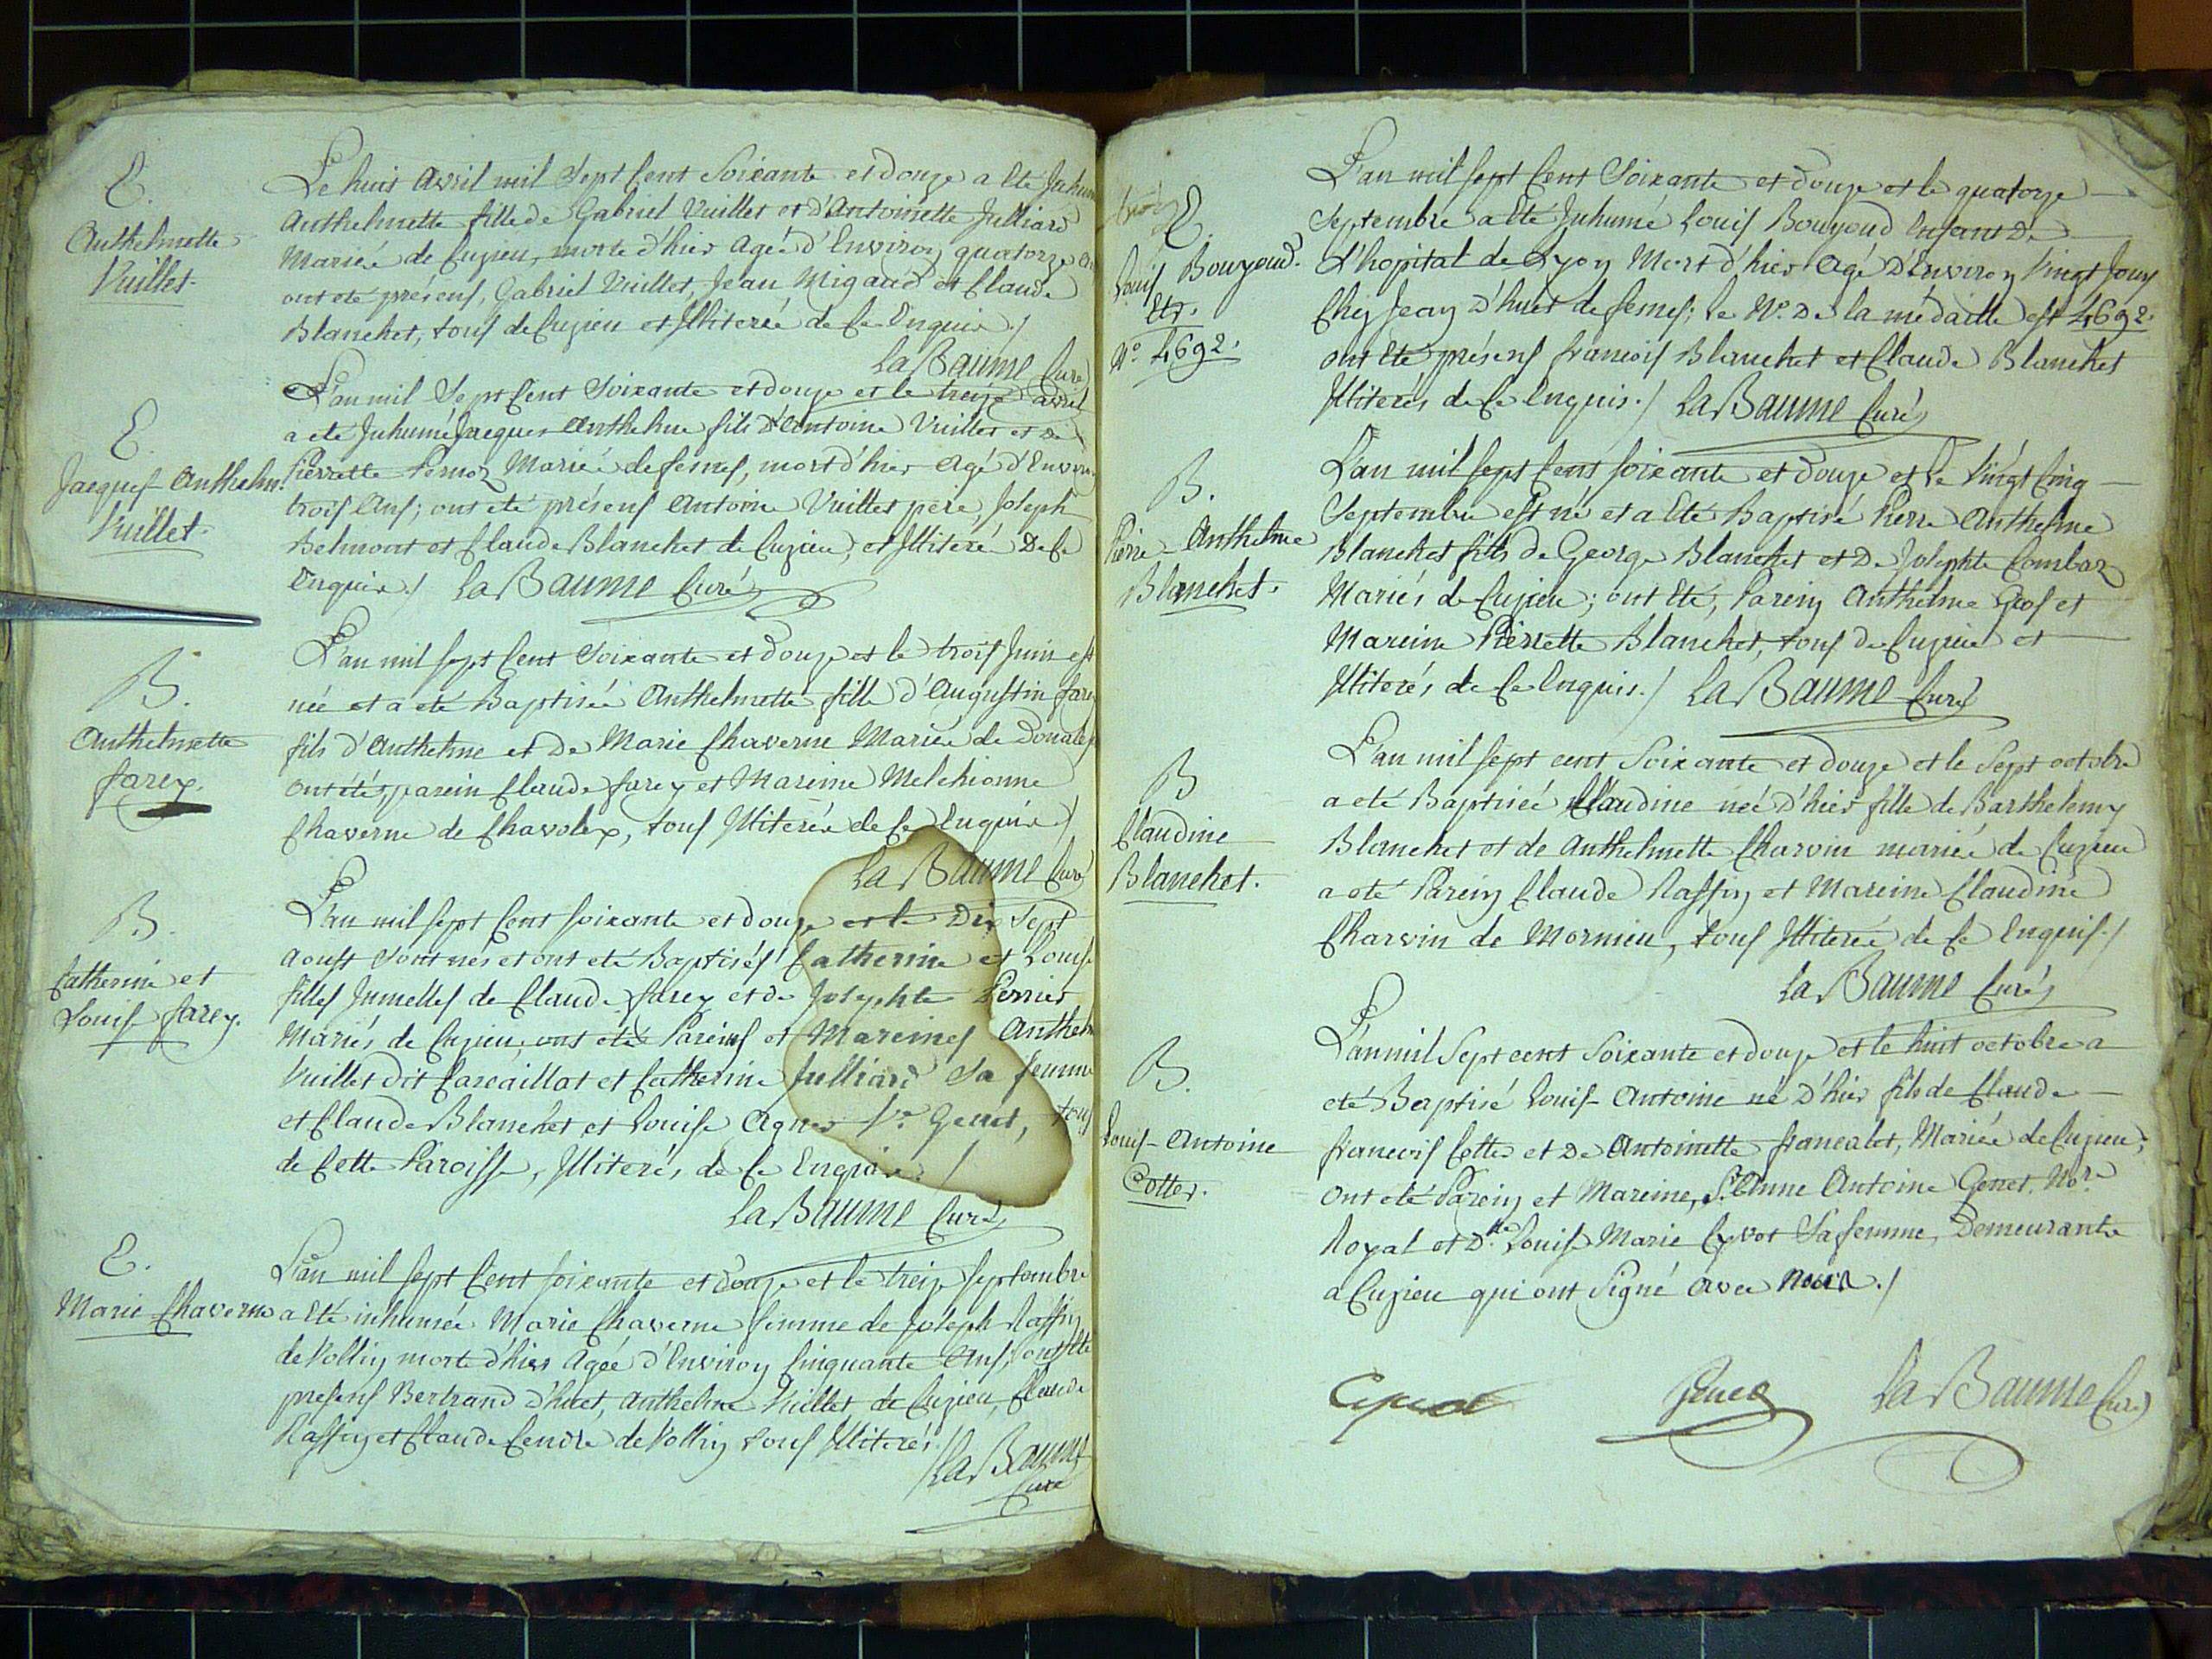 E.
Anthelmette
Vuillet.
Le huit Avril mil Sept Cent Soixante et douze a Eté Juhum
Anthelmette fille de Gabriel Vuillet et d'Antoinette Julliard
Mariée de Cuzieu, morte d'hier Agée d'Environ quatorze
ont eté présens, Gabriel Vuillet, Jean Migard et Claude
Blanchet, tous de Cuzieu et Illiterée de Ce Enquis./
La Baume Curé
E.
Jacques Anthelm.
Vuillet.
L'an mil Sept Cent Soixante et douze et le treize avril
a eté Juhumé Jacques Anthelme fils d'Antoine Vuillet et de
Pierrette Pernoz Mariée de sesnes, mort d'hier Agé d'Environ
trois Ans; ont eté présens Antoine Vuillet père, Joseph
Belmont et Claude Blanchet de Cuzieu, et Illiteré De Ce
Enquis./ La Baume Curé
B.
Anthelmette
farey.
L'an mil sept Cent Soixante et douze et le trois Juin est
née et a eté Baptisée Anthelmette fille d'Augustin farey
fils d'Anthelme et de Marie Chaverne Mariée de
ont étés parein Claude farey et Mareine Melchionne
Chaverne de Chavolex, tous Illiterée de Ce Enquis./
La Baume Curé
B.
Catherine et
Louise farey.
L'an mil sept Cent soixante et douze et le Dix Sept
aoust Sont nés et ont eté Baptisés Catherine et Louise
filles Jumelles de Claude farey et de Josephte Perrier
Mariés de Cuzieu, ont eté Pareins et Mareines Anthelm
Vuillet dit Carcaillat et Catherine Julliard Sa femme
et Claude Blanchet et Louise Agnes Genet, tous
de Cette Paroisse, Illiterés, de Ce Enquis./
La Baume Curé
E.
Marie Chaverne
L'an mil sept Cent soixante et douze et le treize septembre
a Eté inhumée Marie Chaverne femme de Joseph Raffin
de Vollin morte d'hier Agée d'Environ Cinquante Ans, ont Eté
presens Bertrand D'huet, Anthelme Vuillet de Cuzieu, Claude
Raffin et Claude Cendre de Vollin tous Illiterés./
La Baume
Curé
E.
Louis Bouyoud.
Etr.
N.o 4692.
L'an mil sept Cent Soixante et douze et le quatorze
Septembre a Eté Juhumé Louis Bouyoud Enfant De
L'hopital de Lyon Mort d'hier Agé D'Environ Vingt Jours
Chez Jean D'huet de sesnes; Le N.o De la médaille est 4692.
ont Eté présens francois Blanchet et Claude Blanchet
Illiterés de Ce Enquis./ La Baume Curé
B.
Pierre-Anthelme
Blanchet.
L'an mil sept Cent soixante et douze et Le Vingt Cinq
Septembre est né et a Eté Baptisé Pierre Anthelme
Blanchet fils de George Blanchet et De Josephte Combaz
Mariés de Cuzieu; ont Eté, Parein Anthelme Gros et
Mareine Pierrette Blanchet, tous de Cuzieu et
Illiterés de Ce Enquis./ La Baume Curé
B
Claudine
Blanchet.
L'an mil sept cent Soixante et douze et le Sept octobre
a eté Baptisée Claudine née d'hier fille de Barthelemy
Blanchet et de Anthelmette Charvin mariée de Cuzieu
a eté Parein Claude Raffin et Mareine Claudine
Charvin de Mornieu, tous Illiterée de Ce Enquis./
La Baume Curé
B.
Louis-Antoine
Cottez.
L'an mil Sept cent Soixante et douze et le huit octobre a
eté Baptisé Louis-Antoine né D'hier fils de Claude
francois Cottez et De Antoinette francalet, Mariée de Cuzieu;
ont eté Parein et Mareine, Antoine Genet. No.re
Royal et D.lle Louise Marie Cyvot Sa femme, Demeurante
a Cuzieu qui ont Signé avec Nous./
Cyvot
Genet
La Baume Curé